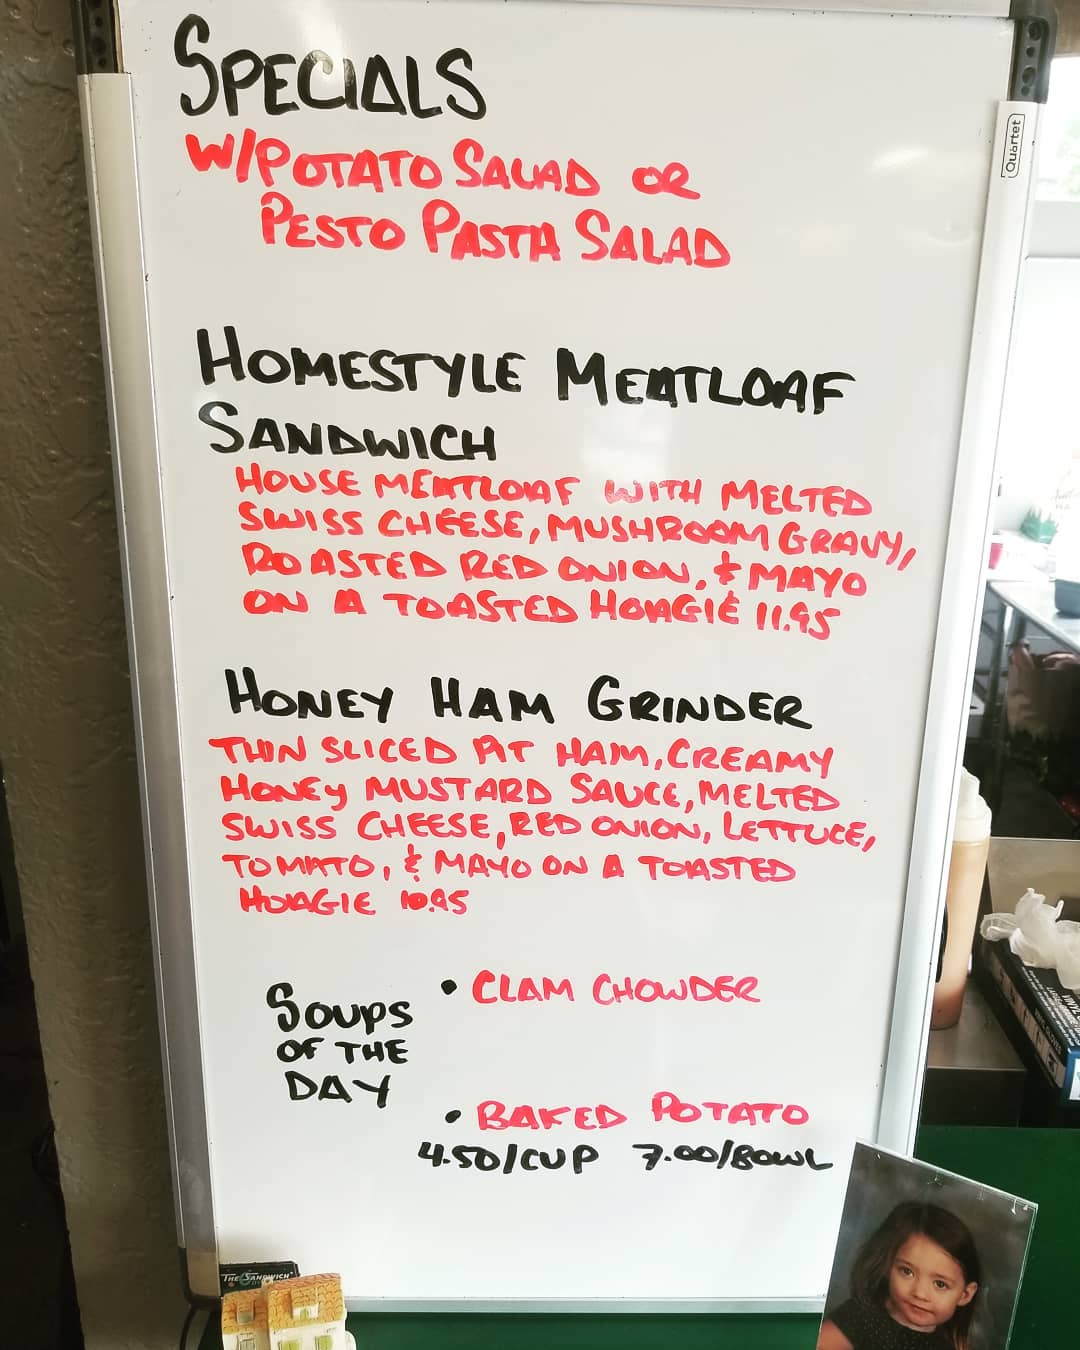 SPECIALS
W/POTATO SALAD OR
PESTO PASTA SALAD
Quartet
HOMESTYLE MEATLOAF
SANDWICH
HOUSE MEATLOAF WITH MELTED
SWISS CHEESE, MUSHROOM GRAVY,
ROASTED RED ONION, & MAYO
ON A TOASTED HOAGIE 11.95
HONEY HAM GRINDER
THIN SLICED PIT HAM, CREAMY
HONEY MUSTARD SAUCE, MELTED
SWISS CHEESE, RED ONION, LETTUCE,
TOMATO, & MAYO ON A TOASTED
HOAGIE 10.95
SOUPS
OF THE
DAY
• CLAM CHOWDER
• BAKED POTATO
4.50/CUP 7.00/BOWL
THE SANDWICH
VINYL